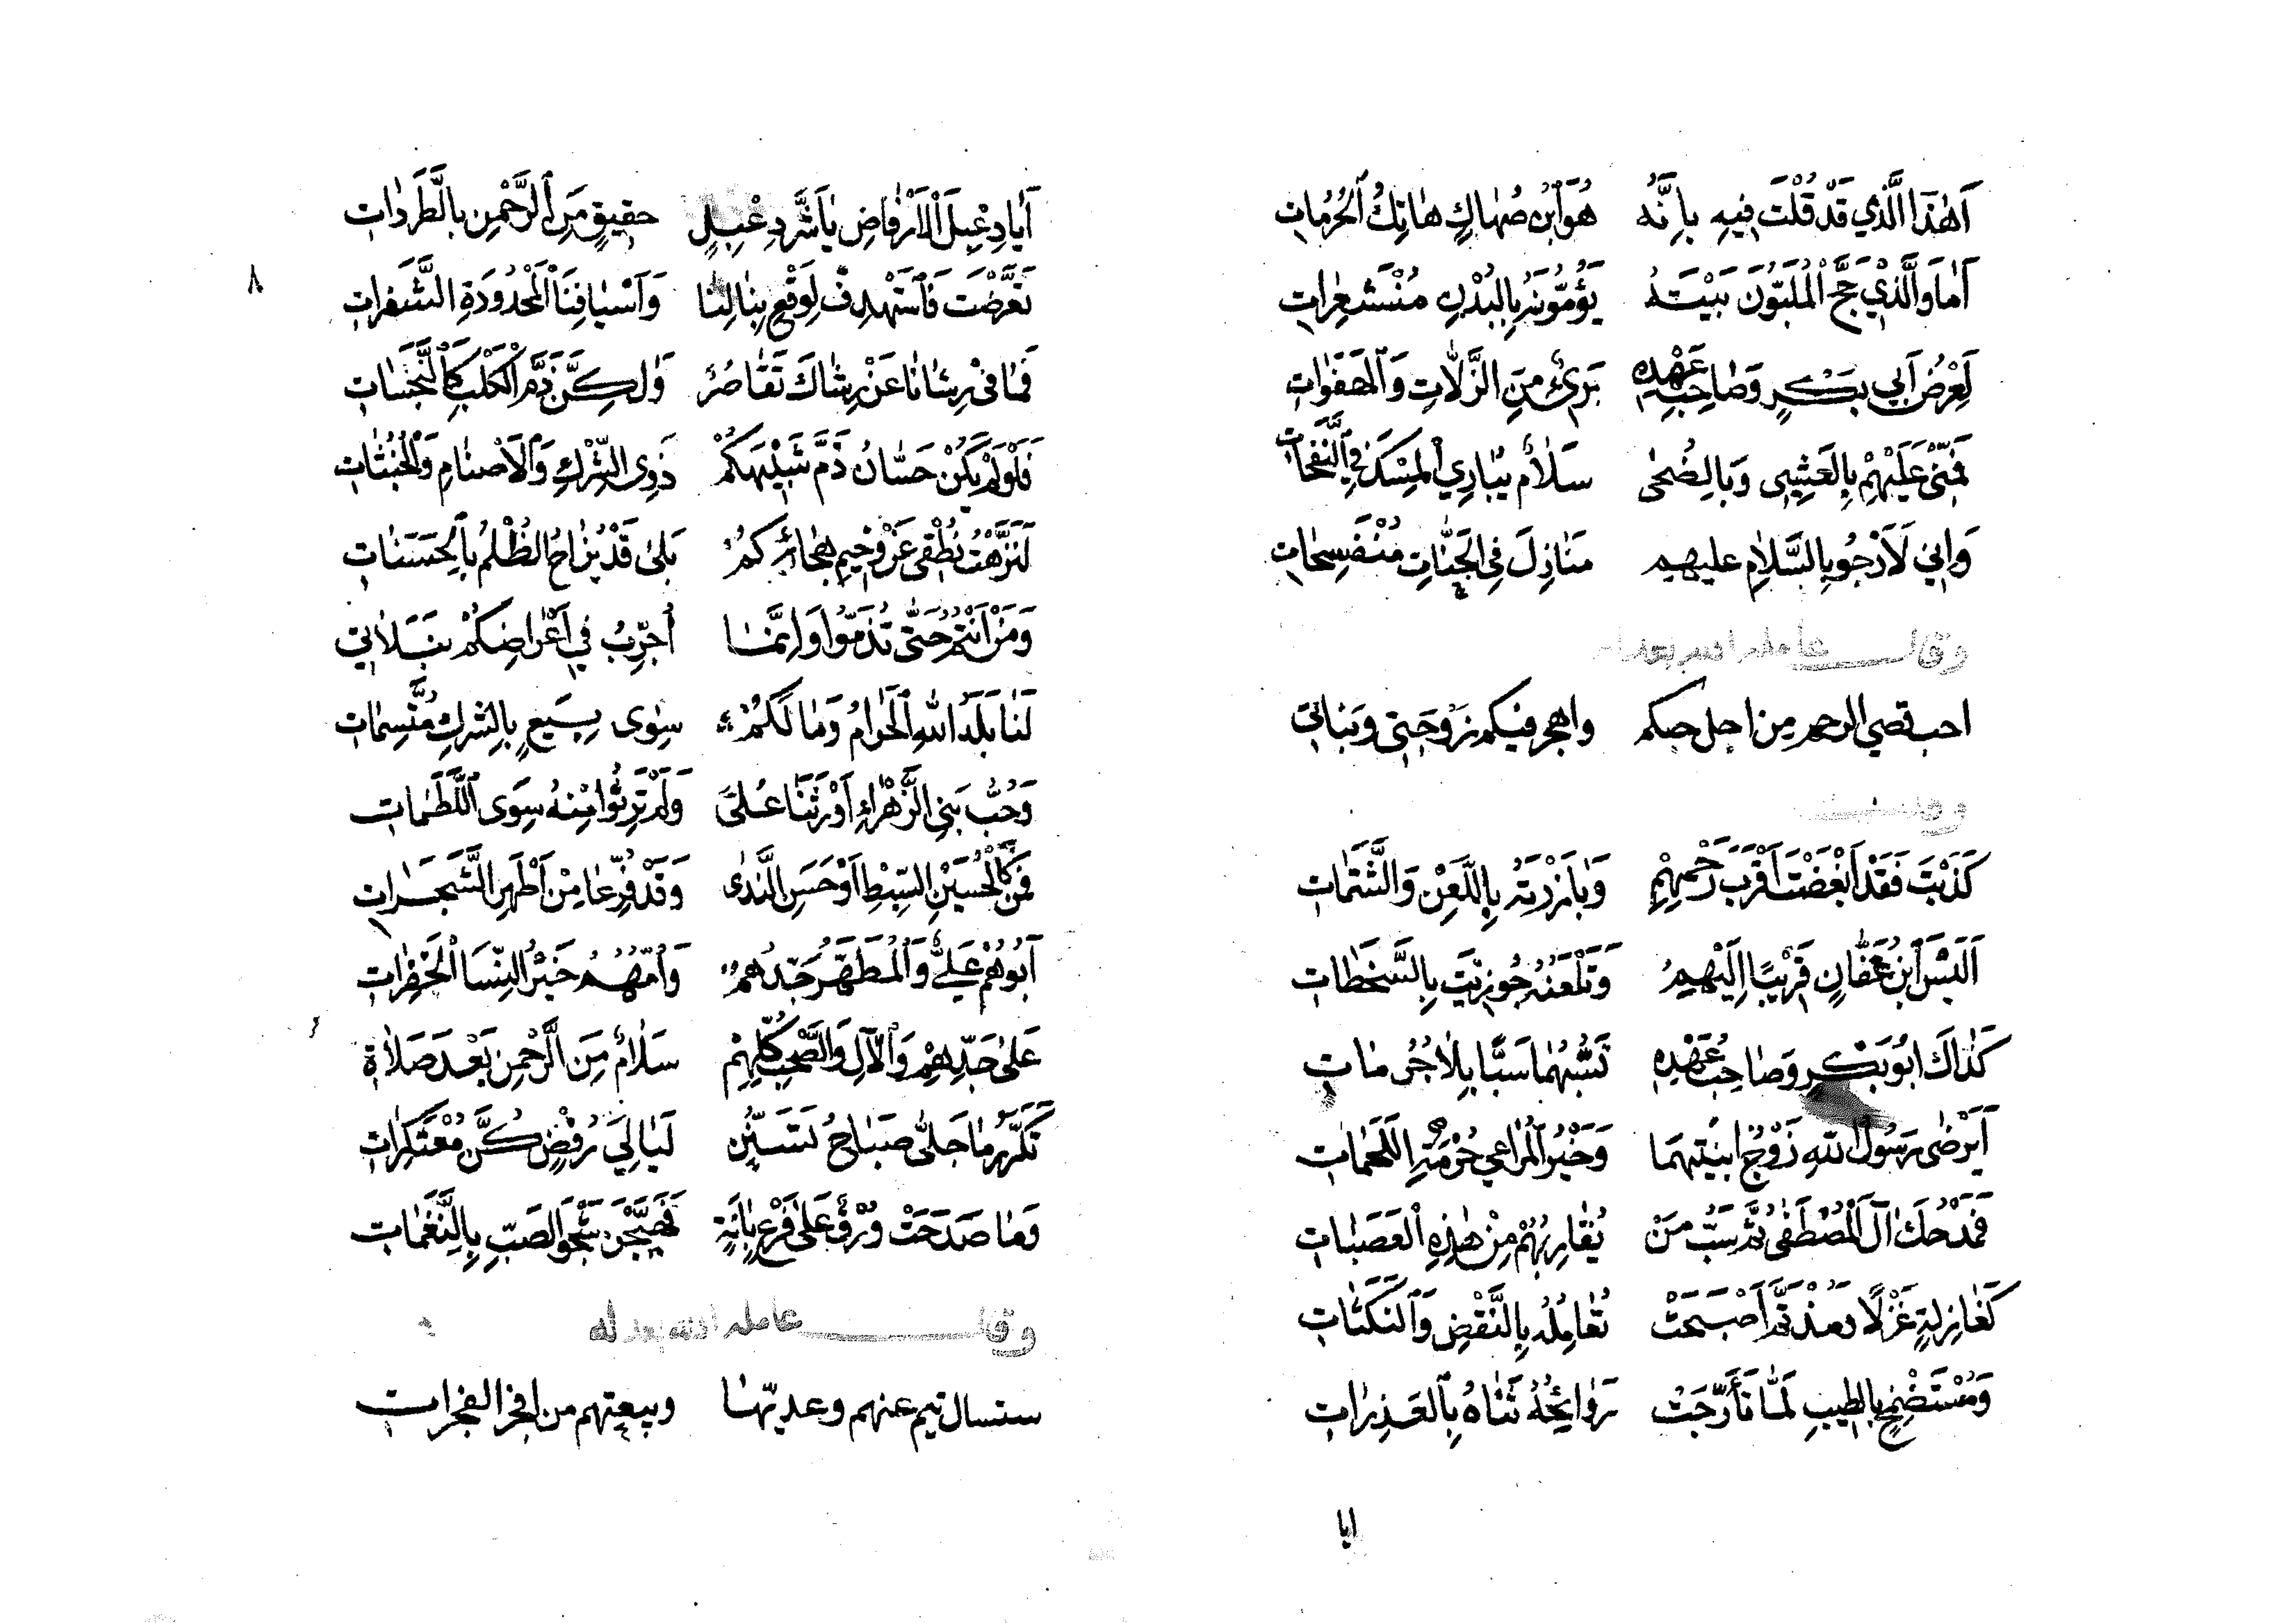 أَهٰذَا الَّذِي قَدْ قُلْتَ فِيهِ بِأَنَّهُ هُوَ ابْنُ صُهَاكٍ هَاتِكُ الْحُرُمَاتِ
أَمَا وَالَّذِي حَجَّ الْمُلَبُّونَ بَيْتَهُ يَؤُمُّونَهُ بِالْبُدْنِ مُنْتَشِعِرَاتِ
لَعِرْضُ أَبِي بَكْرٍ وَصَاحِبِ عَهْدِهِ بَرِيٌّ مِنَ الزَّلَّاتِ وَالْهَفَوَاتِ
فَمِنِّي عَلَيْهِمْ بِالْعَشِيِّ وَبِالضُّحَى سَلَامٌ يُبَارِي الْمِسْكَ فِي النَّفَحَاتِ
وَإِنِّي لَأَرْجُو بِالسَّلَامِ عليهم مَنَازِلَ فِي الْجَنَّاتِ مُنْفَسِحَاتِ
وقال عامله الله بعدله
احب قصي الرحم من اجل حبكم واهجر فيكم زَوْجَتِي وَبَنَاتِي
كَذَبْتَ فَقَدْ أَبْغَضْتَ أَقْرَبَ رَحْمِهِمْ وَبَارَزْتَهُ بِاللَّعْنِ وَالشَّتَمَاتِ
أَلَيْسَ ابْنُ عَفَّانٍ قَرِيبًا إِلَيْهِمُ وَتَلْعَنُهُ جُوزِيتَ بِالسَّخَطَاتِ
كَذَاكَ ابُو بَكْرٍ وَصَاحِبُ عَهْدِهِ تَسُبُّهُمَا سَبًّا بِلَا جُرُمَاتِ
أَيَرْضَى رَسُولُ اللهِ زَوْجُ ابْنَتَيْهِمَا وَخَيْرُ الْمُرَاعِي حُرْمَةِ اللَّحَمَاتِ
فَمَدْحُكَ آلَ الْمُصْطَفَى ثُمَّ سَبُّ مَنْ يُقَارِبُهُمْ مِنْ هٰذِهِ الْعَصَبَاتِ
كَغَازِلَةٍ غَزْلًا وَمُذْ تَمَّ أَصْبَحَتْ تُعَامِلُهُ بِالنَّقْضِ وَالنَّكَثَاتِ
وَمُسْتَضْمِخٍ بِالطِّيبِ لَمَّا تَأَرَّجَتْ رَوَائِحُهُ ثَنَاهُ بِالْعَذِرَاتِ
ايا
أَيَا دِعْبِلَ الْأَرْفَاضِ يَا شَرَّ دِعْبِلٍ حقيقٍ مِنَ الرَّحْمٰنِ بِالطَّرَدَاتِ
تَعَرَّضْتَ فَاسْتَهْدِفْ لِوَقْعِ نِبَالِنَا وَأَسْيَافِنَا الْمَحْدُودَةِ الشَّفَرَاتِ
فَمَا فِي رِشَانَا عَنْ رِشَاكَ تَقَاصُرٌ وَلٰكِنَّ ذَمَّ الْكَلْبِ كَالنَّجَسَاتِ
فَلَوْ لَمْ يَكُنْ حَسَّانُ ذَمَّ شَبِيهَكُمْ ذَوِي الشِّرْكِ وَالْأَصْنَامِ وَالْخُبُثَاتِ
لَنَزَّهْتُ نُطْقِي عَنْ وَخِيمِ هِجَائِكُمْ بَلَى قَدْ يُزَاحُ الظُّلْمُ بِالْحَسَنَاتِ
وَمَنْ أَنْتُمُ حَتَّى تُذَمُّوا وَإِنَّمَا أُجَرِّبُ فِي أَعْرَاضِكُمْ نَبَلَاتِي
لَنَا بَلَدُ اللهِ الْحَرَامُ وَمَا لَكُمْ سِوَى بِيَعٍ بِالشِّرْكِ مُتَّسِمَاتِ
وَحُبُّ بَنِي الزَّهْرَاءِ أَوْرَثَنَا عُلًى وَلَمْ تَرِثُوا مِنْهُ سِوَى اللَّطَمَاتِ
فَمَنْ كَالْحُسَيْنِ السِّبْطِ أَوْ حَسَنِ النَّدَى وَقَدْ فُرِّعَا مِنْ أَطْهَرِ الشَّجَرَاتِ
أَبُوهُمْ عَلِيٌّ وَالْمُطَهَّرُ جَدُّهُمْ وَأُمُّهُمُ خَيْرُ النِّسَا الْخَفِرَاتِ
عَلَى جَدِّهِمْ وَالْآلِ وَالصَّحْبِ كُلِّهِمْ سَلَامٌ مِنَ الرَّحْمٰنِ بَعْدَ صَلَاةِ
تَكَرَّرُ مَا جَلَّى صَبَاحُ تَسَنُّنٍ لَيَالِيَ رُفْضٍ كُنَّ مُعْتَكِرَاتِ
وَمَا صَدَحَتْ وُرْقٌ عَلَى فَرْعِ بَانَةٍ فَهَيَّجْنَ شَجْوَ الصَّبِّ بِالنَّغَمَاتِ
وقال عامله الله بعدله
ستسال تيم عنهم وعديّها وبيعتهم من افجر الفجرات
٨